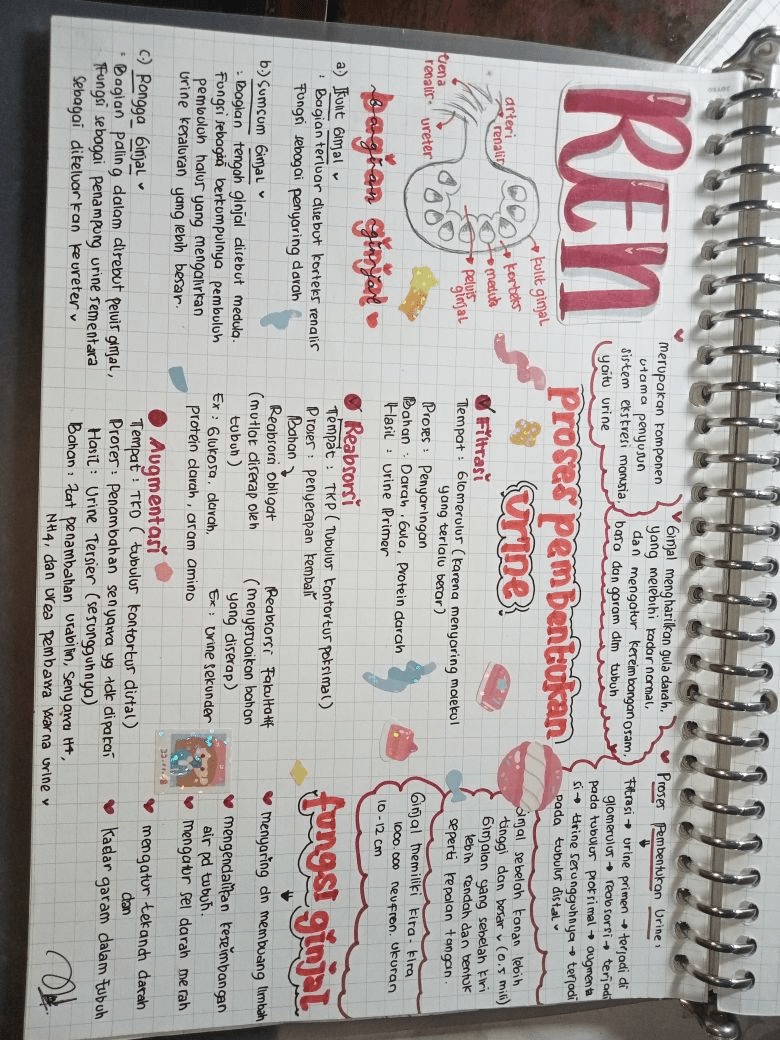 REN
merupakan komponen
utama penyusun
sistem ekskresi manusia.
yaitu urine
Ginjal mengharilkan gula darah,
yang melebihi kadar normal,
dan mengatur kereimbangan asam,
basa dan garam dlm tubuh
Proses Pembentukan Urine:
Filtrasi → urine primen → terjadi di
glomerulus → reabsorsi → terjadi
pada tubulus proksimal → augmenta
si → urine sesungguhnya → terjadi
pada tubulus distal
kulit ginjal
korteks
medula
pelvis
ginjal
arteri
renalis
vena
renalis
ureter
bagian ginjal
a) Kulit Ginjal
: Bagian terluar disebut korteks renalis
Fungsi sebagai penyaring darah
b) Sumsum Ginjal
: Bagian tengah ginjal disebut medula.
Fungsi sebagai berkumpulnya pembuluh
pembuluh halus yang mengalirkan
urine kesaluran yang lebih besar.
c) Rongga Ginjal
: Bagian paling dalam disebut pelvis ginjal,
Fungsi sebagai penampung urine sementara
sebagai dikeluarkan ke ureter
proses pembentukan
urine
Filtrasi
Tempat : Glomerulus (karena menyaring molekul
yang terlalu besar)
Proses : Penyaringan
Bahan : Darah, Gula, Protein darah
Hasil : Urine Primer
Reabsorsi
Tempat : TKP (Tubulus kontortus poksimal)
Proses : penyerapan kembali
Bahan
Reabsorsi obligat
(mutlak diserap oleh
tubuh)
Ex : Glukosa, darah,
protein darah, asam amino
Reabsorsi Fakultatif
(menyesuaikan bahan
yang diserap)
Ex : Urine sekunder
Augmentasi
Tempat : TKD (tubulus kontortur distal)
Proses : Penambahan senyawa yg tdk dipakai
Hasil : Urine Tersier (sesungguhnya)
Bahan : zat penambahan urabilin, senyawa H+,
NH4, dan urea pembawa warna urine
Ginjal sebelah kanan lebih
tinggi dan besar (0,5 mili)
Ginjalan yang sebelah kiri
lebih rendah dan bentuk
seperti kepalan tangan.
Ginjal memiliki kira-kira
1000.000 neufron. ukuran
10-12 cm
fungsi ginjal
menyaring dn membuang limbah
mengendalikan keseimbangan
air pd tubuh.
mengatur sel darah merah
mengatur tekanan darah
dan
kadar garam dalam tubuh